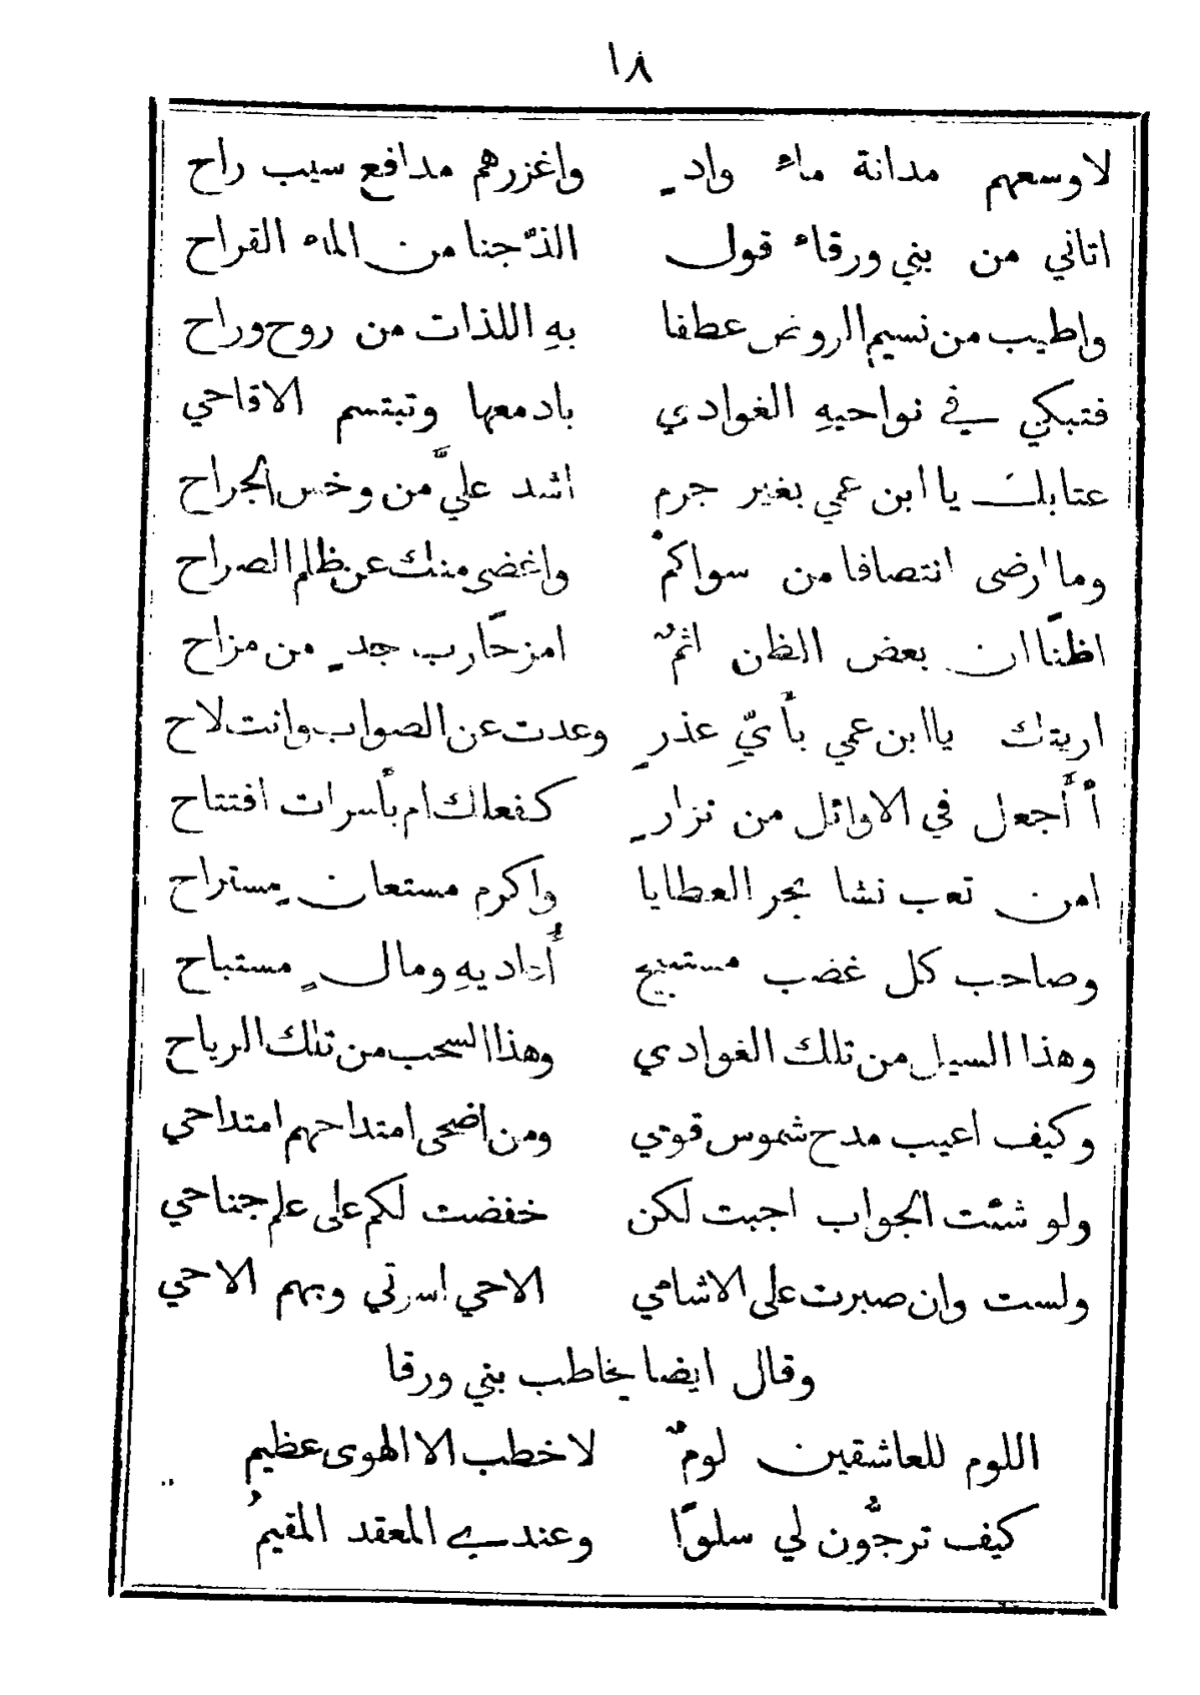 ١٨
لاوسعهم مدانة ماءٍ وادٍ واغزرهم مدافع سيب راح
اتاني من بني ورقاء قول الذّ جنا من الماء القراح
واطيب من نسيم الروض عطفا بهِ اللذات من روح وراح
فتبكي في نواحيهِ الغوادي بادمعها وتبتسم الاقاحي
عتابك يا ابن عمي بغير جرم اشد عليَّ من وخس الجراح
وما ارضى انتصافا من سواكمْ واغضي منك عن ظلم الصراح
اظنًا ان بعض الظن اثمٌ امزحًا رب جدٍ من مزاح
اريتك يا ابن عمي بأيِّ عذرٍ وعدت عن الصواب وانت لاح
أ أَجعل في الاوائل من نزارٍ كفعلك ام بأسرات افتتاح
امن تعب نشا بحر العطايا واكرم مستعانٍ مستراح
وصاحب كل غضب مستبيح أُعاديهِ ومالٍ مستباح
وهذا السيل من تلك الغوادي وهذا السحب من تلك الرياح
وكيف اعيب مدح شموس قومي ومن اضحى امتداحهم امتداحي
ولو شئت الجواب اجبت لكن خفضت لكم على علم جناحي
ولست وان صبرت على الاشامي الاحي اسرتي وبهم الاحي
وقال ايضا يخاطب بني ورقا
اللوم للعاشقين لومٌ لا خطب الا الهوى عظيم
كيف ترجُّون لي سلوًا وعندي المعقد المقيمُ